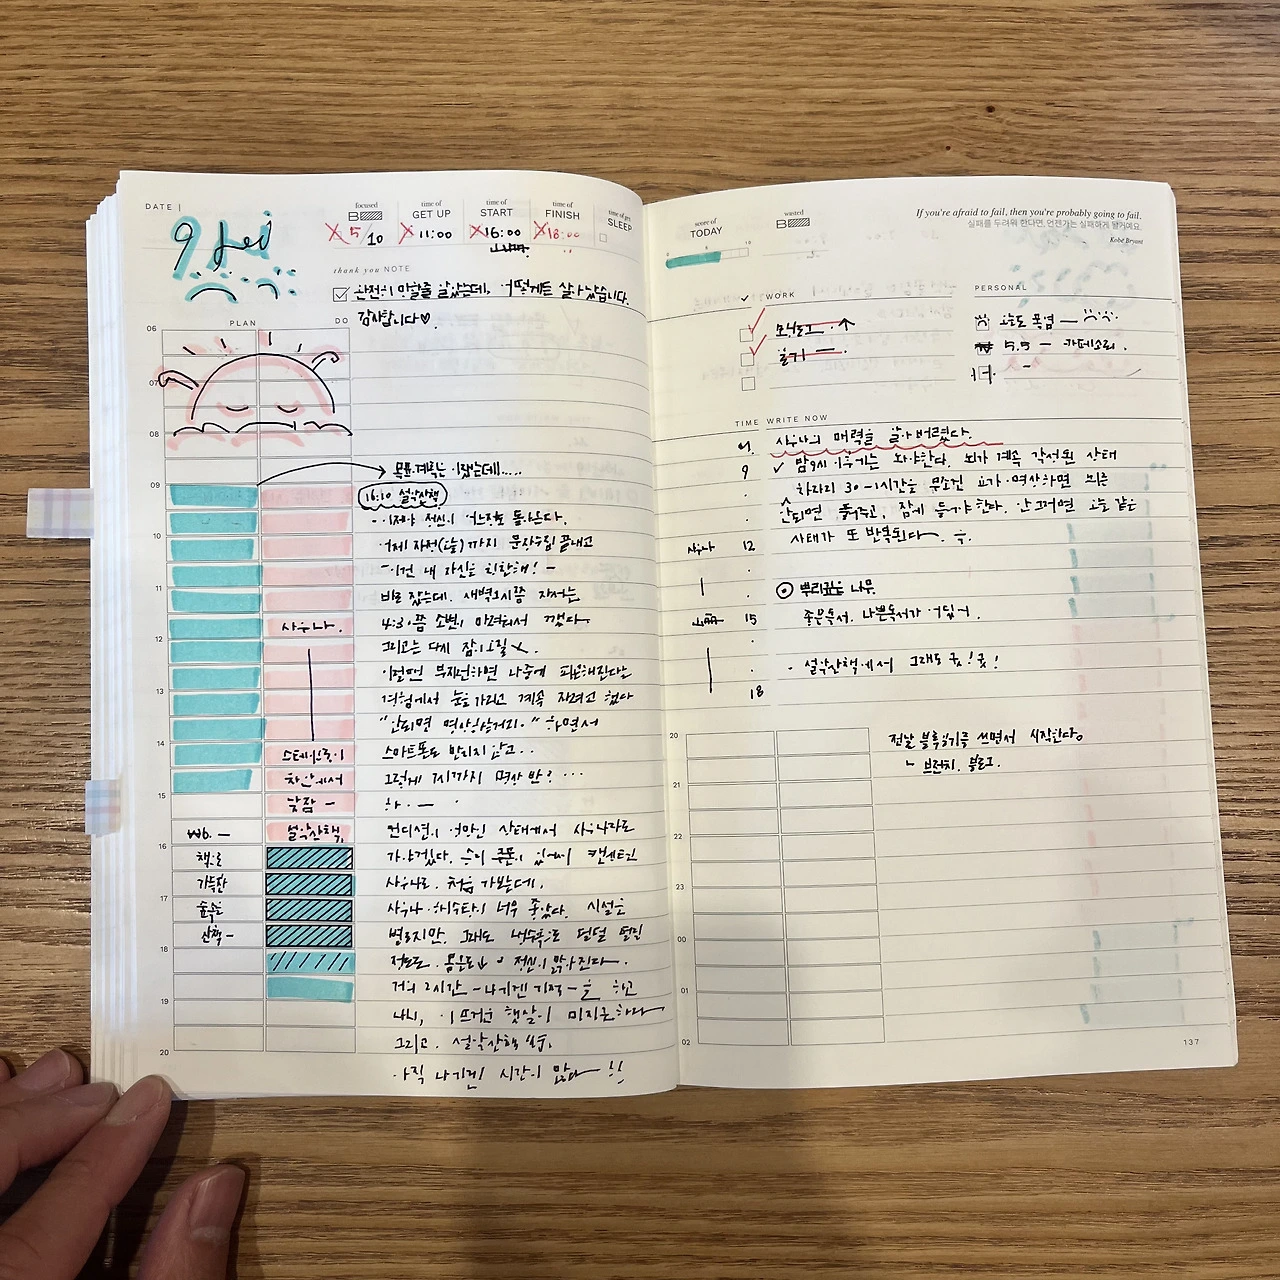 DATE |
9 fri
focused
5/10
time of
GET UP
11:00
time of
START
16:00
time of
FINISH
18:00
time of get
SLEEP
thank you NOTE
완전히 망할줄 알았는데, 어떻게든 살아났습니다.
감사합니다♡.
PLAN
DO
06
07
08
09
10
11
12
13
14
15
16
17
18
19
20
사우나.
차안에서
낮잠 -
설악산책,
책으로
가득찬
숲속으로
산책 -
목표.계획는 이랬는데.....
16:10 설악산책
- 이제야 정신이 어느정도 돌아온다.
어제 자정(오늘)까지 문장수집 끝내고
- 이건 내 자신을 칭찬해! -
바로 잤는데. 새벽2시쯤 자서는
4:30쯤 소변이 마려워서 깼다.
그리고는 다시 잠이 오질 X.
이럴땐 무지련하면 나중에 피곤해진다는
경험에서 눈을 가리고 계속 자려고 했다
"안되면 명상인거지." 하면서
스마트폰도 만지지 않고..
그렇게 7시까지 명상 반? ...
하. —
컨디션이 엉망인 상태에서 사우나라도
가야겠다. 속이 쿠폰이 있어서 켄싱턴
사우나로. 처음 가봤는데.
사우나.해수탕이 너무 좋았다. 시설은
별로지만. 그래도 냉수욕으로 덜덜 떨릴
정도로. 몸온도↓ 정신이 맑아진다.
거의 2시간 - 나기엔 기적 - 을 하고
나니, 이 뜨거운 햇살이 미지근하다
그리고. 설악산책 입장.
아직 나기엔 시간이 많다 !!
score of
TODAY
wasted
If you're afraid to fail, then you're probably going to fail.
실패를 두려워 한다면, 언젠가는 실패하게 될거예요.
Kobe Bryant
WORK
모닝루틴. ↑
일기 —.
PERSONAL
오늘도 폭염 —
5,5 — 카페소리.
TIME WRITE NOW
사우나의 매력을 알아버렸다.
9 ✓ 밤9시 이후기는 놔야한다. 뇌가 계속 각성된 상태
차라리 30-1시간을 무조건 요가.명상하면 비슷
안되면 풀어주고, 잠에 들어가야 한다. 안그러면 오늘 같은
사우나 12 사태가 또 반복된다.
⊙ 뿌리깊은 나무.
15 좋은독서. 나쁜독서가 어딨어.
- 설악산책에서 그래도 굿! 굿!
18
20
21
22
23
00
01
02
전날 블루일기를 쓰면서 시작한다.
ㄴ 브런치. 블로그.
137